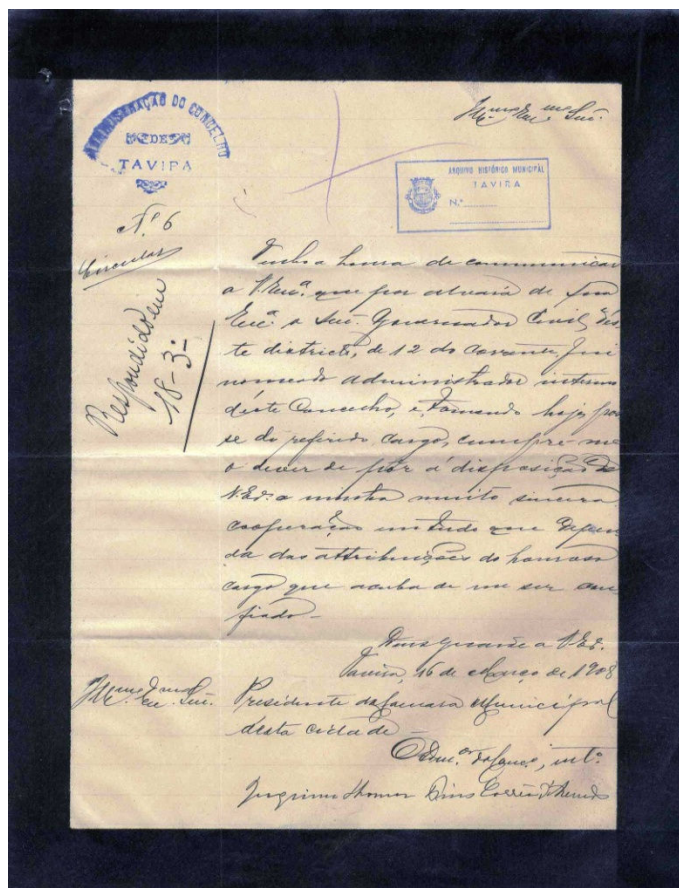 ADMINISTRAÇÃO DO CONCELHO
DE
TAVIRA
Illmo Exmo Snr.
ARQUIVO HISTÓRICO MUNICIPAL
TAVIRA
N.º
N.º 6
Circular
Respondido em
18-3-
Tenho a honra de communicar
a V. Exª. que por alvará de Sua
Exª. o Snr. Governador Civil, dés
te districto, de 12 do corrente, fui
nomeado administrador interino
déste Concelho, e tomando hoje pos
se do referido cargo, cumpre-me
o dever de pôr á disposição de
V. Exª. a minha muito sincera
cooperação em tudo que depen
da das attribuições do honroso
cargo que acaba de me ser con
fiado.
Deus guarde a V. Exª.
Tavira, 16 de Março de 1908
Illmo Exmo Snr. Presidente da Camara Municipal
désta cidade
O Admor do Conco, into.
Correia